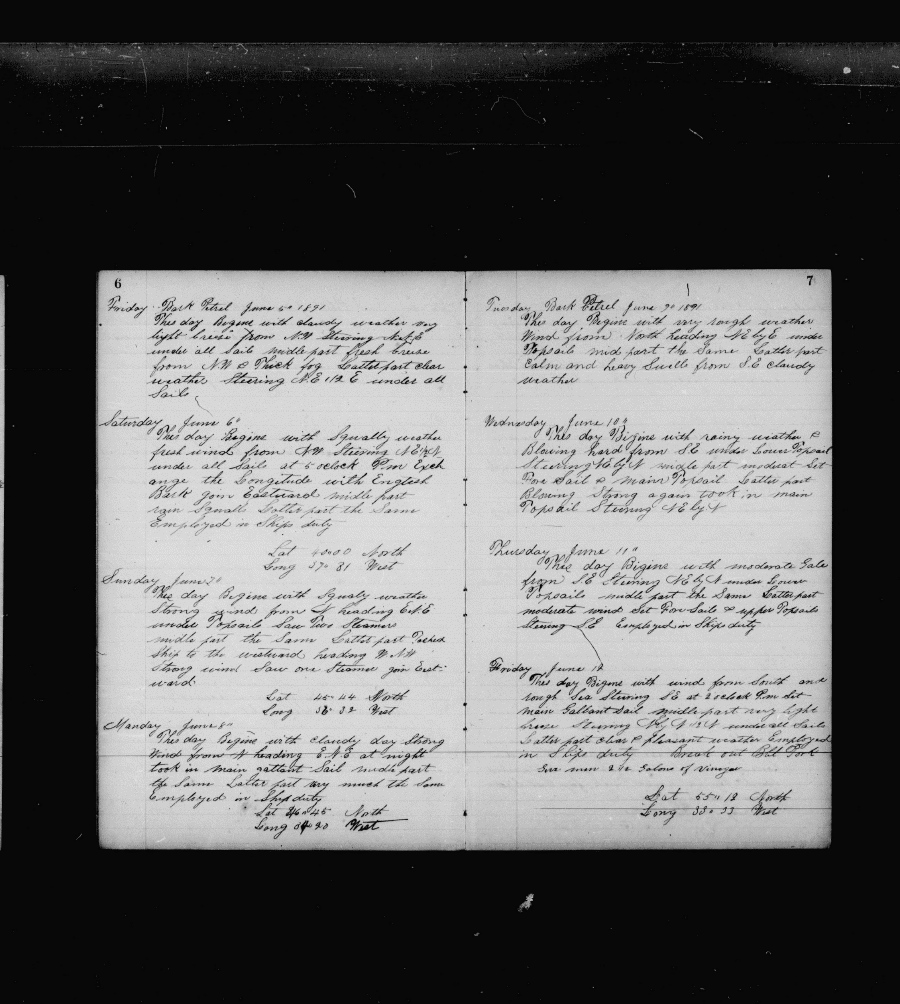 6
Friday Bark Petrel June 5th 1891
This day Begine with claudy weather very
light breeze from NW Steering
under all Sails midle part fresh breeze
from NW & Thick fog Latter part clear
weather Steering NE 1/2 E under all
Sails
Saturday June 6th
This day Begine with Squally weather
fresh wind from NW Steering
under all Sails at 5 oclock P.m Exch
ange the Longitude with English
Bark goin Eastward midle part
rain Squalls Latter part the Same
Employed in Ships duty
Lat North
Long West
Sunday June 7th
This day Begine with Squaly weather
Strong wind from N heading ENE
under Topsails Saw Two Steamers
midle part the Same Latter part Tacked
Ship to the westward heading WNW
Strong wind Saw one Steamer goin East
ward
Lat 45-44 North
Long West
Manday June 8th
This day Begine with Claudy day Strong
Wind from N heading ENE at night
took in main gallant Sail midle part
the Same Latter part very much the Same
Employed in Ship duty
Lat North
Long West
7
Tuesday Bark Petrel June 9th 1891
This day Begine with very rough weather
Wind from North heading NE by E under
Topsails mid part the Same Latter part
Calm and heavy Swells from SE claudy
weather
Wednesday June 10th
This day Bigine with rainy weather &
Blowing hard from SE under Lower Topsail
Steering NE by N midle part moderat Set
Fore Sail & main Topsail Latter part
Blowing Strong again took in main
Topsail Steering NE by N
Thursday June 11th
This day Bigine with moderate Gale
from SE Steering NE by N under Lower
Topsails midle part the Same Latter part
moderate wind Set Fore Sails & upper Topsails
Steering SE Employed in Ships duty
Friday June 12
This day Begine with wind from South and
rough Sea Steering SE at 2 oclock P.m Set
main Gallant Sail midle part very light
breeze Steering under all Sails
Latter part clear & pleasant weather Employed
in Ships duty Break out
men Galons of Vinegar
Lat 55-13 North
Long 33-33 West